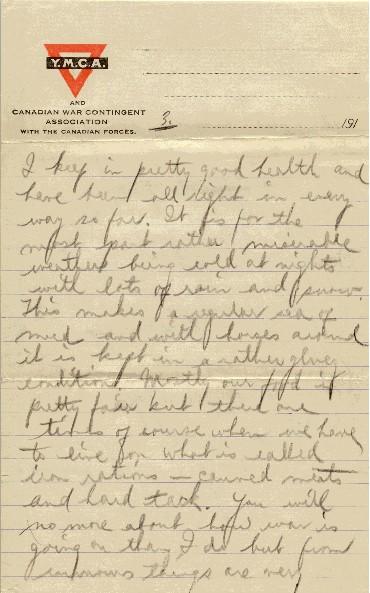 Y.M.C.A.
AND
CANADIAN WAR CONTINGENT
ASSOCIATION
WITH THE CANADIAN FORCES.
3. 191
I keep in pretty good health and
have been all right in every
way so far. It is for the
most part rather miserable
weather being cold at nights
with lots of rain and snow.
This makes a regular sea of
mud and with horses around
it is kept in a rather gluey
condition. Mostly our food is
pretty fair but there are
times of course when we have
to live on what is called
iron rations — canned meats
and hard tack. You will
no more about how war is
going on than I do but from
rumours things are very